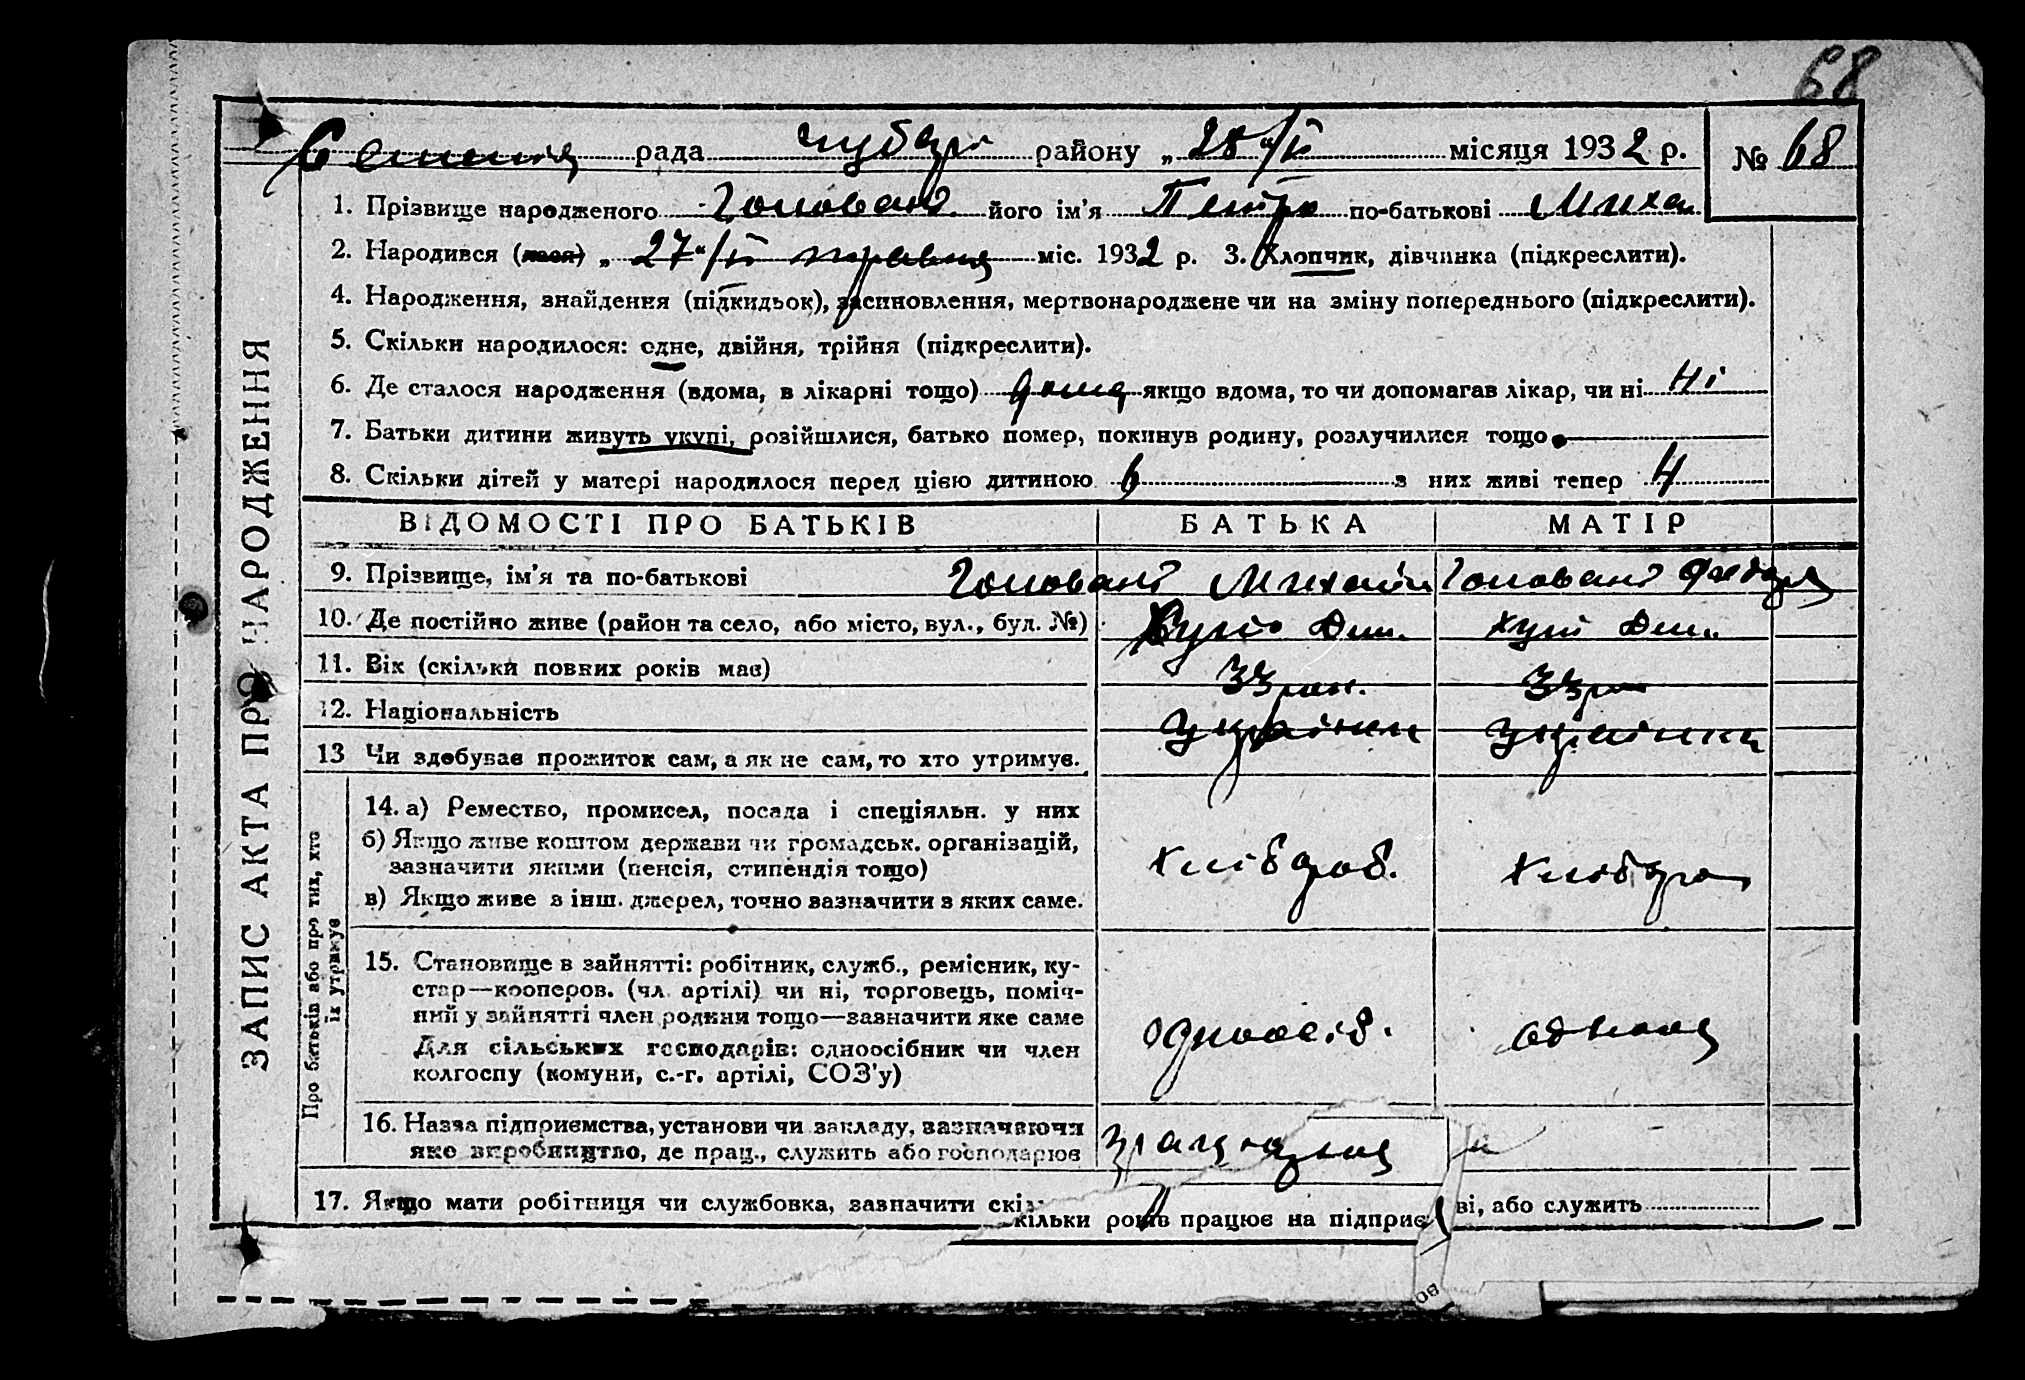 68
рада чубар району „28"/V місяця 1932 р. № 68
1. Прізвище народженого Головань його ім'я Петро по-батькові Миха
2. Народився (лася) „27"/V травня міс. 1932 р. 3. Хлопчик, дівчинка (підкреслити).
4. Народження, знайдення (підкидьок), засиновлення, мертвонароджене чи на зміну попереднього (підкреслити).
5. Скільки народилося: одне, двійня, трійня (підкреслити).
6. Де сталося народження (вдома, в лікарні тощо) дома якщо вдома, то чи допомагав лікар, чи ні Ні
7. Батьки дитини живуть укупі, розійшлися, батько помер, покинув родину, розлучилися тощо
8. Скільки дітей у матері народилося перед цією дитиною 6 з них живі тепер 4
ЗАПИС АКТА ПРО НАРОДЖЕННЯ
ВІДОМОСТІ ПРО БАТЬКІВ БАТЬКА МАТІР
9. Прізвище, ім'я та по-батькові Головань Михайло Головань Федора
10. Де постійно живе (район та село, або місто, вул., буд. №) Хут. Хут.
11. Вік (скільки повних років має) 33 рок. 33 рок
12. Національність українка
13 Чи здобував прожиток сам, а як не сам, то хто утримує.
Про батьків або про тих, хто їх утримує
14. а) Ремество, промисел, посада і спеціяльн. у них
б) Якщо живе коштом держави чи громадськ. організацій,
зазначити якими (пенсія, стипендія тощо) хлібороб. хлібороб
в) Якщо живе з інш. джерел, точно зазначити з яких саме.
15. Становище в зайнятті: робітник, служб., ремісник, ку-
стар—кооперов. (чл. артілі) чи ні, торговець, поміч-
ний у зайнятті член родини тощо—зазначити яке саме
Для сільських господарів: одноосібник чи член одноосіб.
колгоспу (комуни, с.-г. артілі, СОЗ'у)
16. Назва підприємства, установи чи закладу, зазначаючи
яке виробництво, де прац., служить або господарює
17. Якщо мати робітниця чи службовка, зазначити скі
кільки років працює на підприє
ві, або служить